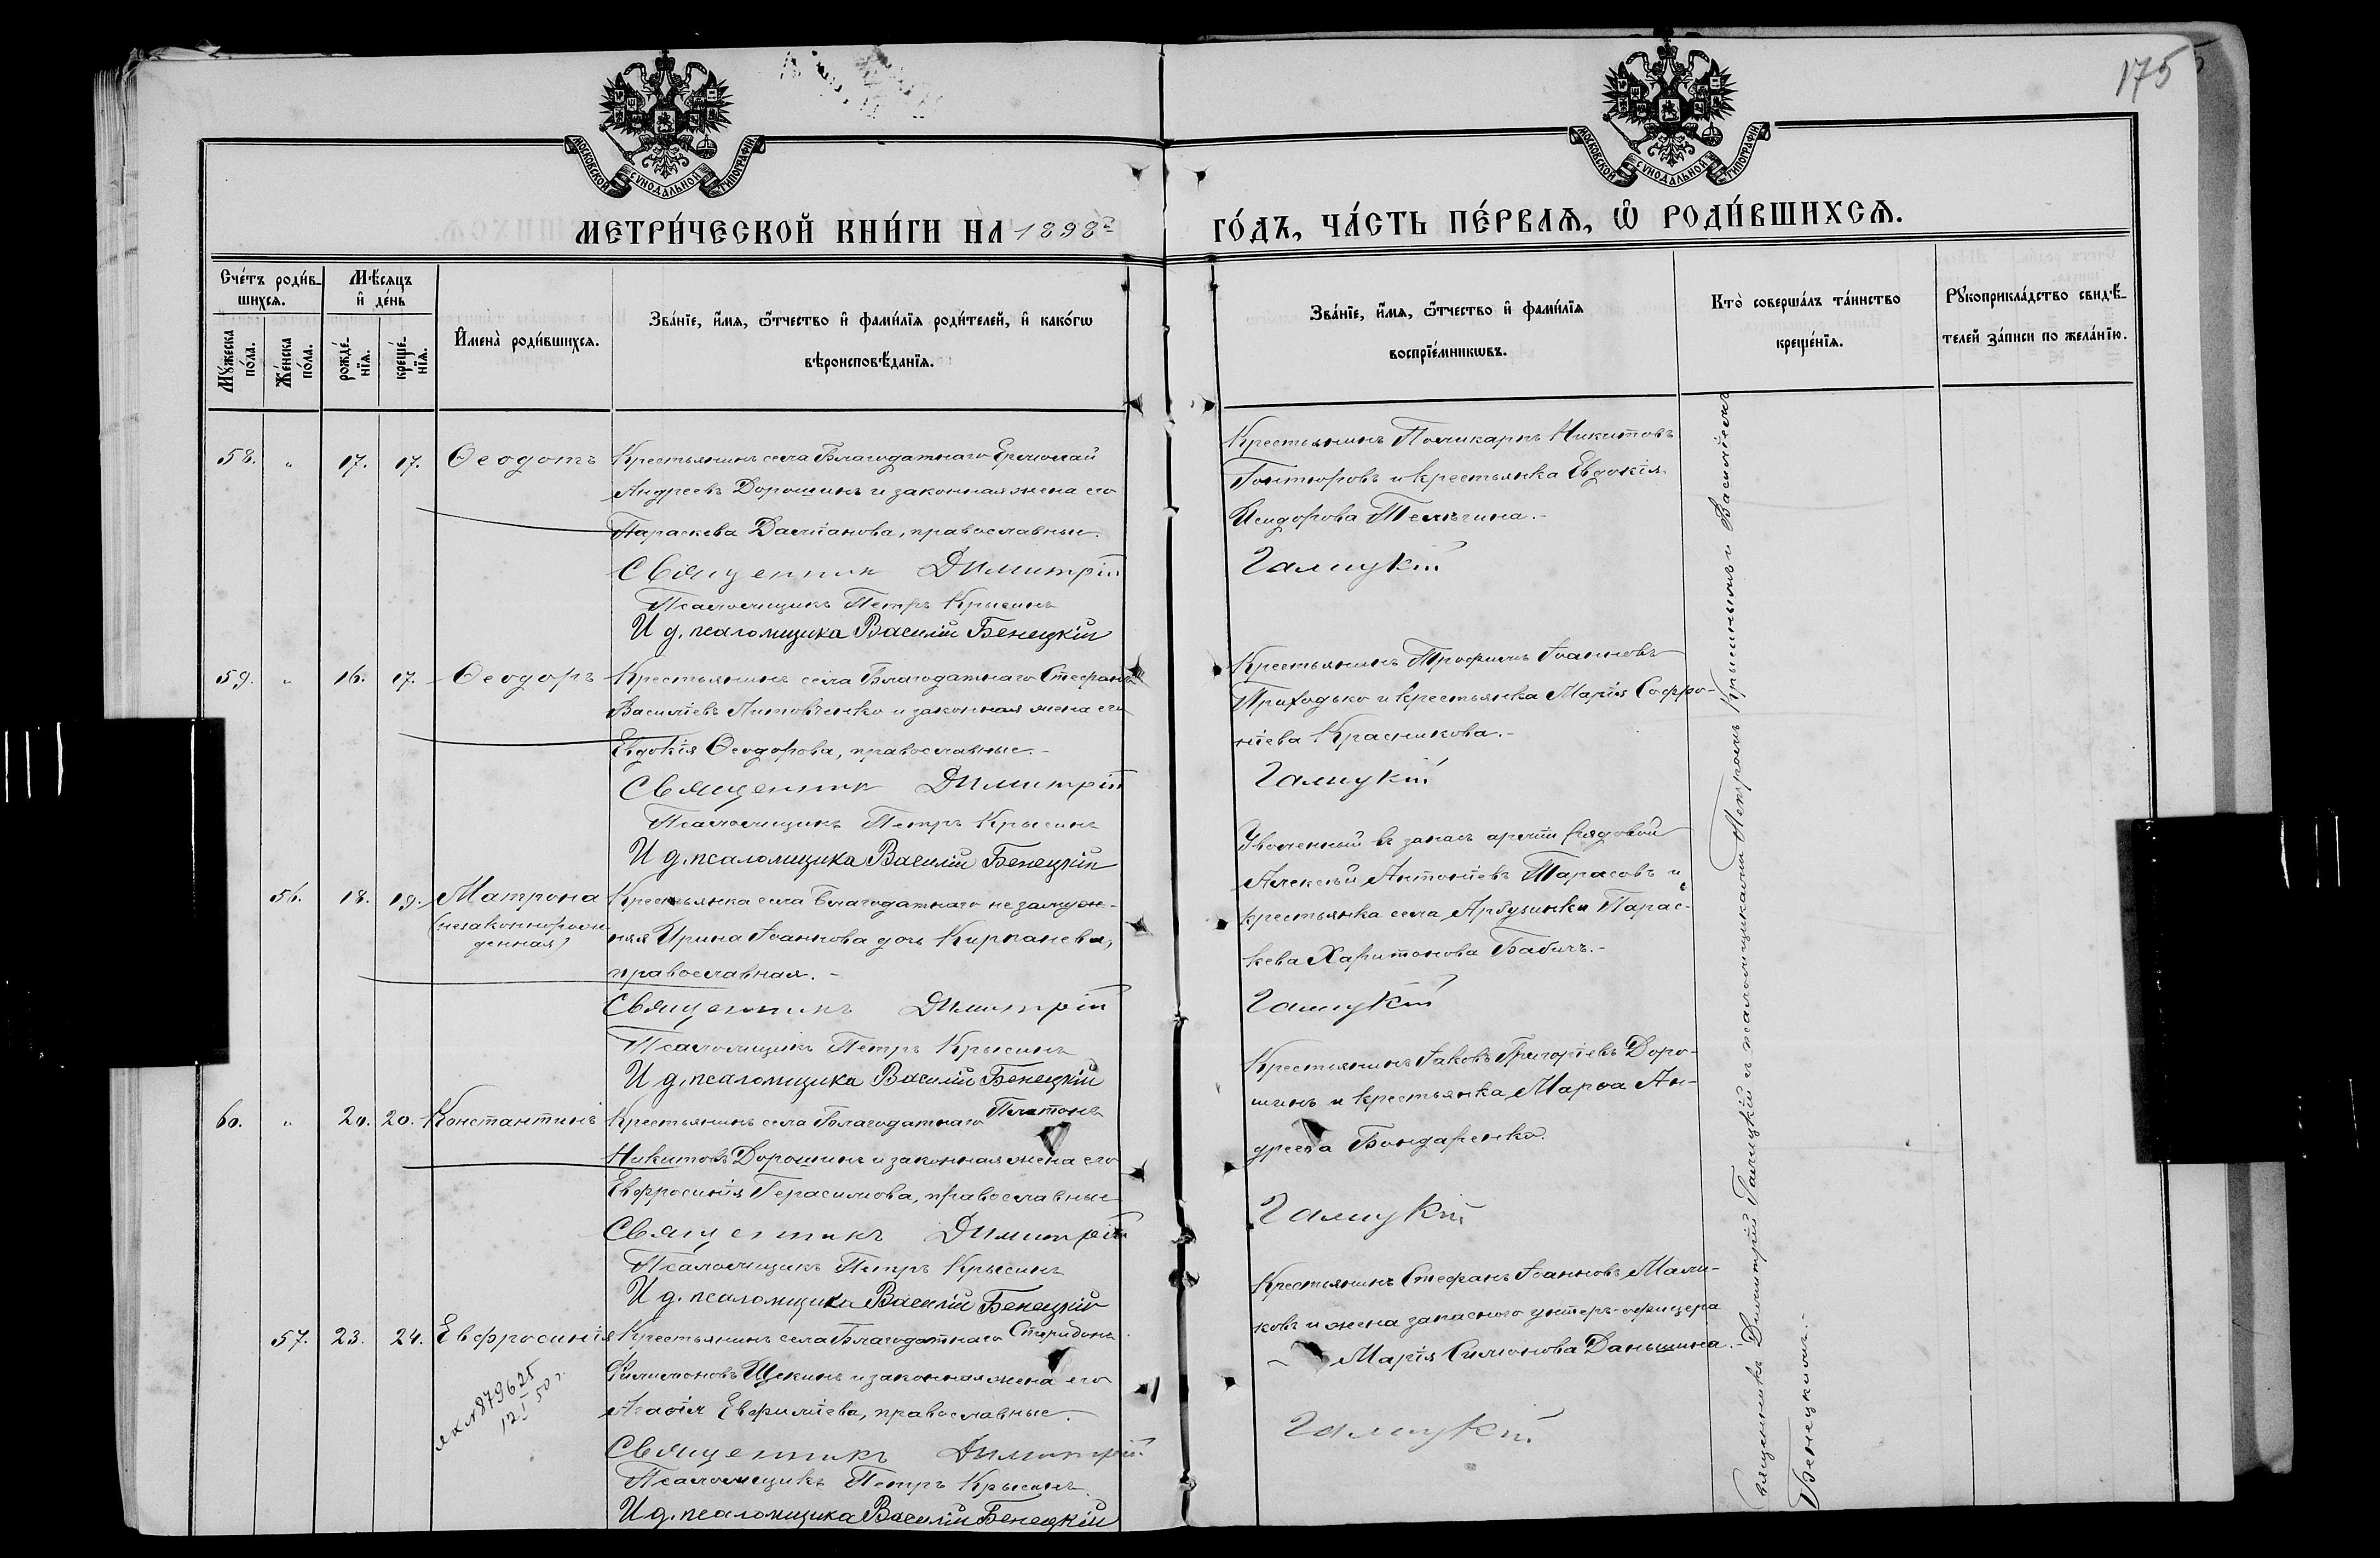 175
МОСКОВСКОЙ СѴНОДАЛЬНОЙ ТИПОГРАФІИ
МОСКОВСКОЙ СѴНОДАЛЬНОЙ ТИПОГРАФІИ
МЕТРИ́ЧЕСКОЙ КНИ́ГИ НА 1898 г.
ГО́ДЪ, ЧА́СТЬ ПЕ́РВАѦ, Ѡ҆ РОДИ́ВШИХСѦ.
Сче́тъ роди́в-
шихсѧ.
Мꙋ́жеска
по́ла.
Же́нска
по́ла.
Мѣ́сѧцъ
и҆ де́нь
рожде́-
нїѧ.
креще́-
нїѧ.
И҆мена̀ роди́вшихсѧ.
Зва́нїе, и҆́мѧ, ѻ҆́тчество и҆ фами́лїѧ роди́телей, и҆ како́гѡ
вѣроисповѣ́данїѧ.
Зва́нїе, и҆́мѧ, ѻ҆́тчество и҆ фами́лїѧ
воспрїе́мникѡвъ.
Кто̀ соверша́лъ та́инство
креще́нїѧ.
Рꙋкоприкла́дство свидѣ́-
телей за́писи по жела́нїю.
58. " 17. 17. Ѳеодотъ
Крестьянинъ села Благодатнаго Ермолай
Андреевъ Дорошинъ и законная жена его
Параскева Даміанова, православные.
Священник Димитрій
Псаломщикъ Петръ Крысинъ
И д. псаломщика Василій Бенецкій
Крестьянинъ Поликарпъ Никитовъ
Гонтюровъ и крестьянка Евдокія
Исидорова Телегина.-
Галицкій
59. " 16. 17. Ѳеодоръ
Крестьянинъ села Благодатнаго Стефанъ
Василіевъ Литовченко и законная жена его
Евдокія Ѳеодорова, православные.-
Священник Димитрій
Псаломщикъ Петръ Крысинъ
И д. псаломщика Василій Бенецкій
Крестьянинъ Трофимъ Іоанновъ
Приходько и крестьянка Марія Софро-
ніева Красникова.-
Галицкій
56. 18. 19. Матрона
(незаконнорож
денная)
Крестьянка села Благодатнаго незамуж-
няя Ирина Іоаннова дочь Кирпанева,
православная.-
Священникъ Димитрій
Псаломщикъ Петръ Крысинъ
И д. псаломщика Василій Бенецкій
Уволенный въ запасъ арміи рядовой
Алексѣй Антоніевъ Тарасовъ и
крестьянка села Арбузинки Парас-
кева Харитонова Бабичъ.-
Галицкій
60. " 20. 20. Константинъ
Крестьянинъ села Благодатнаго Платонъ
Никитовъ Дорошинъ и законная жена его
Евфросинія Герасимова, православные
Священникъ Димитрій
Псаломщикъ Петръ Крысинъ
И д. псаломщика Василій Бенецкій
Крестьянинъ Іаковъ Григоріевъ Доро-
шинъ и крестьянка Марѳа Ан-
дреева Бондаренко.
Галицкій
57. 23. 24. Евфросинія
№ 879625
12 I 50 г.
Крестьянинъ села Благодатнаго Спиридонъ
Филимоновъ Щекинъ и законная жена его
Агаѳія Евфиміева, православные.
Священникъ Димитрій
Псаломщикъ Петръ Крысинъ
И д. псаломщика Василій Бенецкій
Крестьянинъ Стефанъ Іоанновъ Мали-
ковъ и жена запаснаго унтеръ-офицера
Марія Симонова Даньшина.-
Галицкій
Священникъ Димитрій Галицкій съ псаломщиками Петромъ Крысинымъ и Василіемъ
Бенецкимъ.-